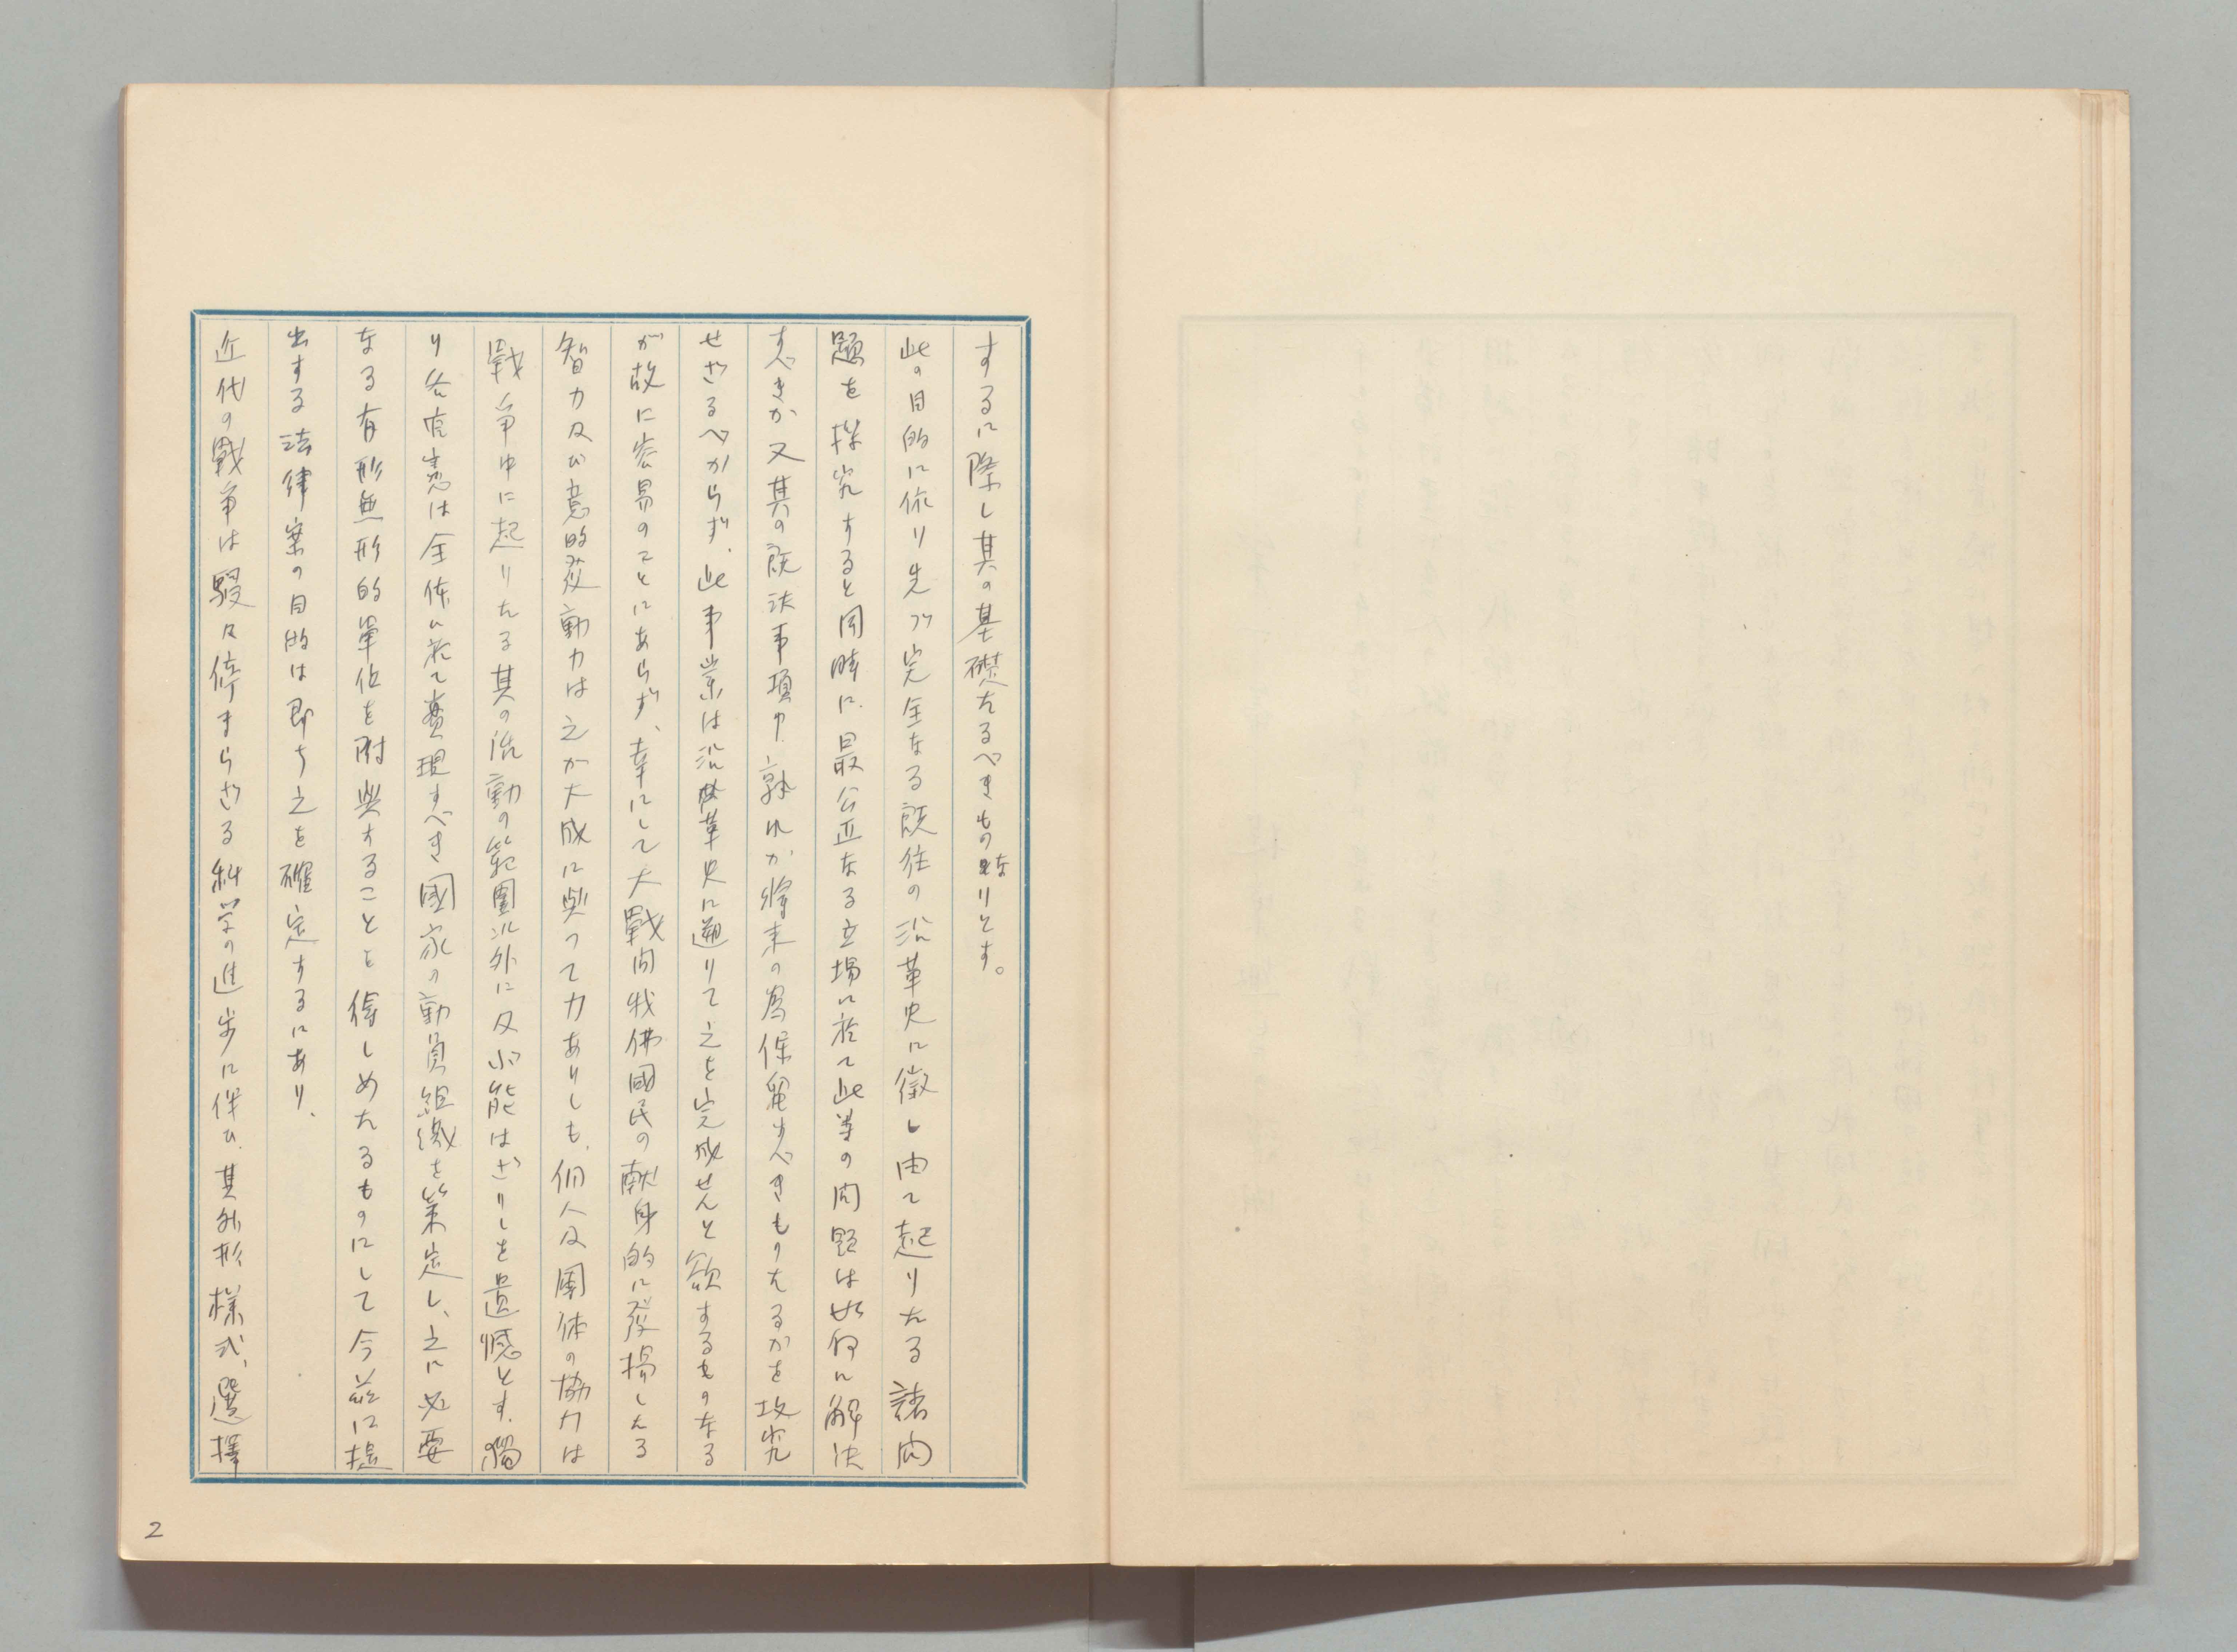 するに際し其の基礎たるべきものなりとす。
此の目的に依り先づ完全なる既往の沿革史に徴し由て起りたる諸問
題を探究すると同時に最公正なる立場に於て此等の問題は如何に解決
すべきか又其の既決事項中孰れが将来の為保留すべきものたるかを攻究
せざるべからず、此事業は沿革史に遡りて之を完成せんと欲するものなる
が故に容易のことにあらず、幸にして大戰間我佛國民の献身的に発揚したる
智力及び意的発動力は之が大成に與って力ありしも、個人及團体の協力は
戰争中に起りたる其の活動の範圍以外に及ぶ能はざりしを遺憾とす、獨
り各官憲は全体に於て實現すべき國家の動員組織を策定し、之に必要
なる有形無形的單位を附與することを得しめたるものにして今茲に提
出する法律案の目的は即ち之を確定するにあり、
近代の戰争は駸々停まらざる科学の進歩に伴ひ其外形様式、選擇
2